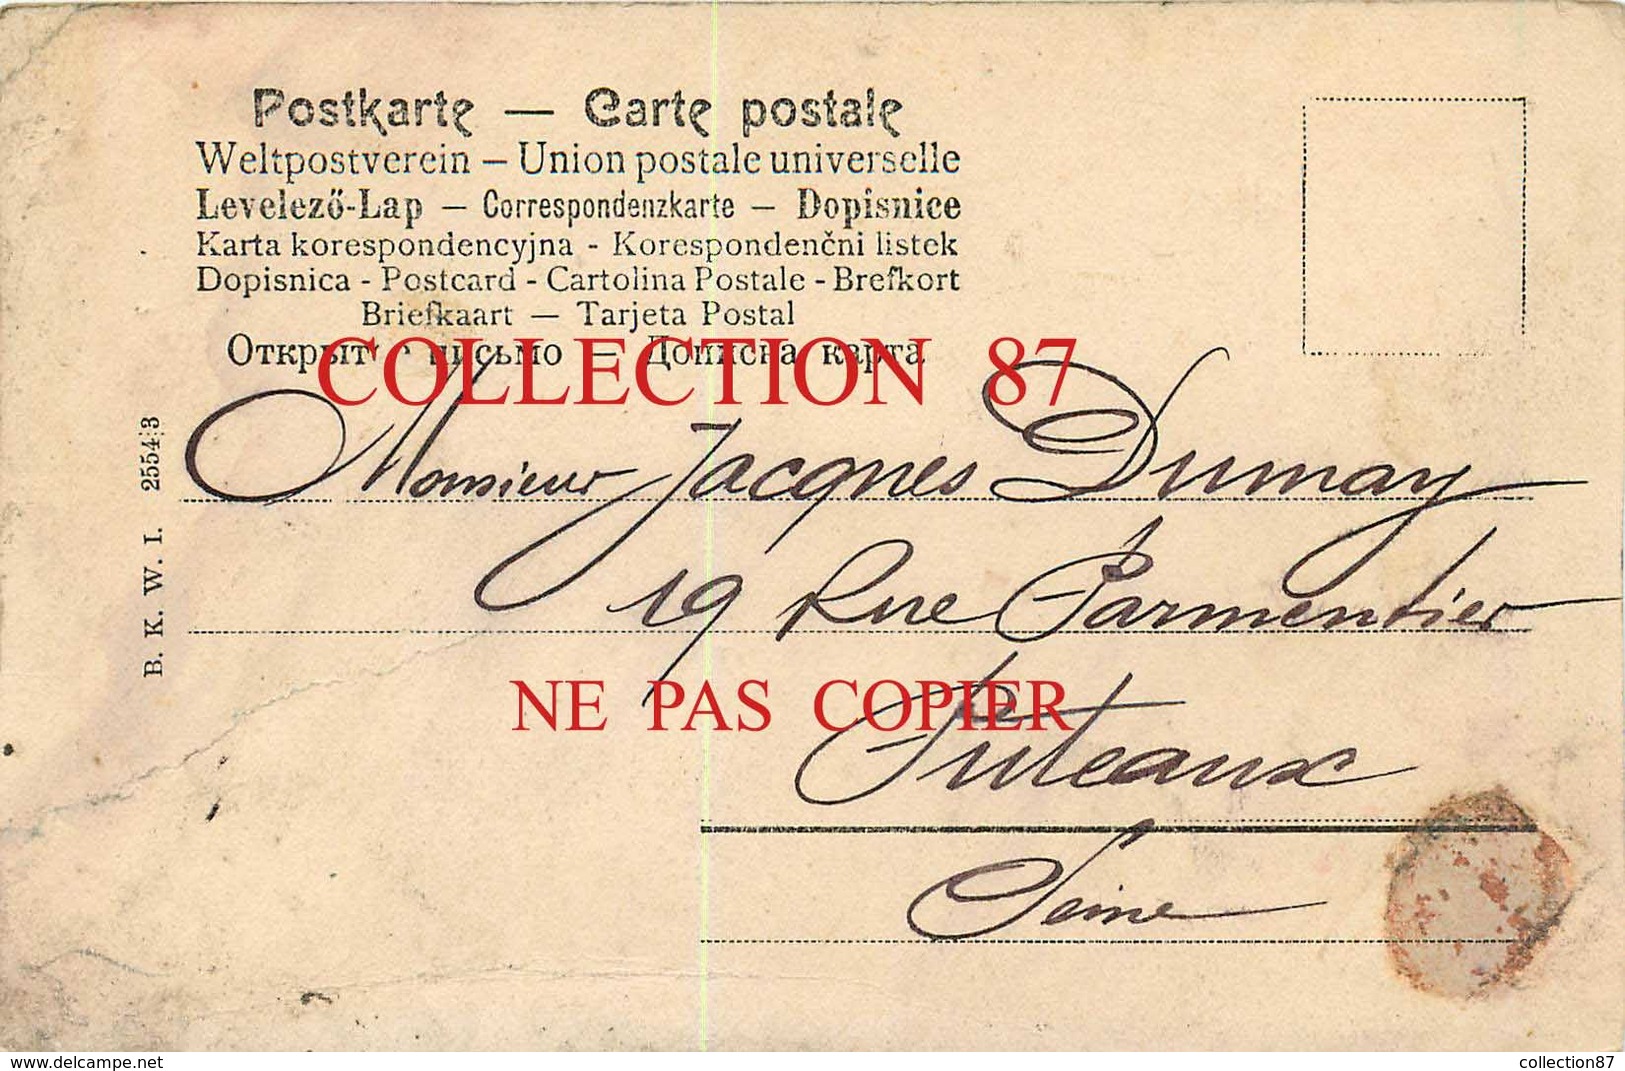 Postkarte — Carte postale
Weltpostverein – Union postale universelle
Levelező-Lap — Correspondenzkarte — Dopisnice
Karta korespondencyjna - Korespondenčni listek
Dopisnica - Postcard - Cartolina Postale - Brefkort
Briefkaart — Tarjeta Postal
Открытое письмо — Дописна карта
COLLECTION 87
Monsieur Jacques Dumay
19 Rue Parmentier
NE PAS COPIER
Puteaux
Seine
B. K. W. I. 2554/3
www.delcampe.net
collection87